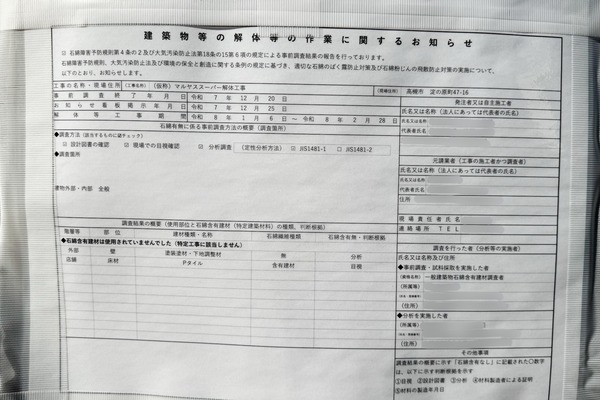 建築物等の解体等の作業に関するお知らせ
☑ 石綿障害予防規則第4条の2及び大気汚染防止法第18条の15第6項の規定による事前調査結果の報告を行っております。
石綿障害予防規則、大気汚染防止法及び環境の保全と創造に関する条例の規定に基づき、適切な石綿のばく露防止対策及び石綿粉じんの飛散防止対策の実施について、
以下のとおり、お知らせします。
工事の名称・現場住所 (工事名称) (仮称) マルヤススーパー解体工事 (現場住所) 高槻市 淀の原町47-16
事前調査終了年月日 令和 7年 12月 20日
お知らせ看板掲示年月日 令和 7年 12月 25日
解体等工事期間 令和 8年 1月 6日 ～ 令和 8年 2月 28日
石綿有無に係る事前調査方法の概要（調査箇所）
◆調査方法（該当するものに☑チェック）
☑ 設計図書の確認 ☑ 現場での目視確認 ☑ 分析調査 (定性分析方法) ☑ JIS1481-1 □ JIS1481-2
◆調査箇所
建物外部・内部 全般
調査結果の概要（使用部位と石綿含有建材（特定建築材料）の種類、判断根拠）
階層等 部位 建材種類・名称 石綿繊維種類 石綿含有無・判断根拠
◆石綿含有建材は使用されていませんでした（特定工事に該当しません）
外部 壁 塗装塗材・下地調整材 無 分析
店舗 床材 Pタイル 含有建材 目視
発注者又は自主施工者
氏名又は名称（法人にあっては代表者の氏名）
氏名又は名称
代表者氏名
元請業者（工事の施工者かつ調査者）
氏名又は名称（法人にあっては代表者の氏名）
氏名又は名称
代表者氏名
住所
現場責任者氏名
連絡場所 TEL
調査を行った者（分析等の実施者）
氏名又は名称及び住所
◆事前調査・試料採取を実施した者
(資格名称) 一般建築物石綿含有建材調査者
(所属等)
(住所)
◆分析を実施した者
(所属等)
(住所)
その他事項
調査結果の概要に示す「石綿含有なし」に記載された○数字
は、以下に示す判断根拠を示す
①目視 ②設計図書 ③分析 ④材料製造者による証明
⑤材料の製造年月日